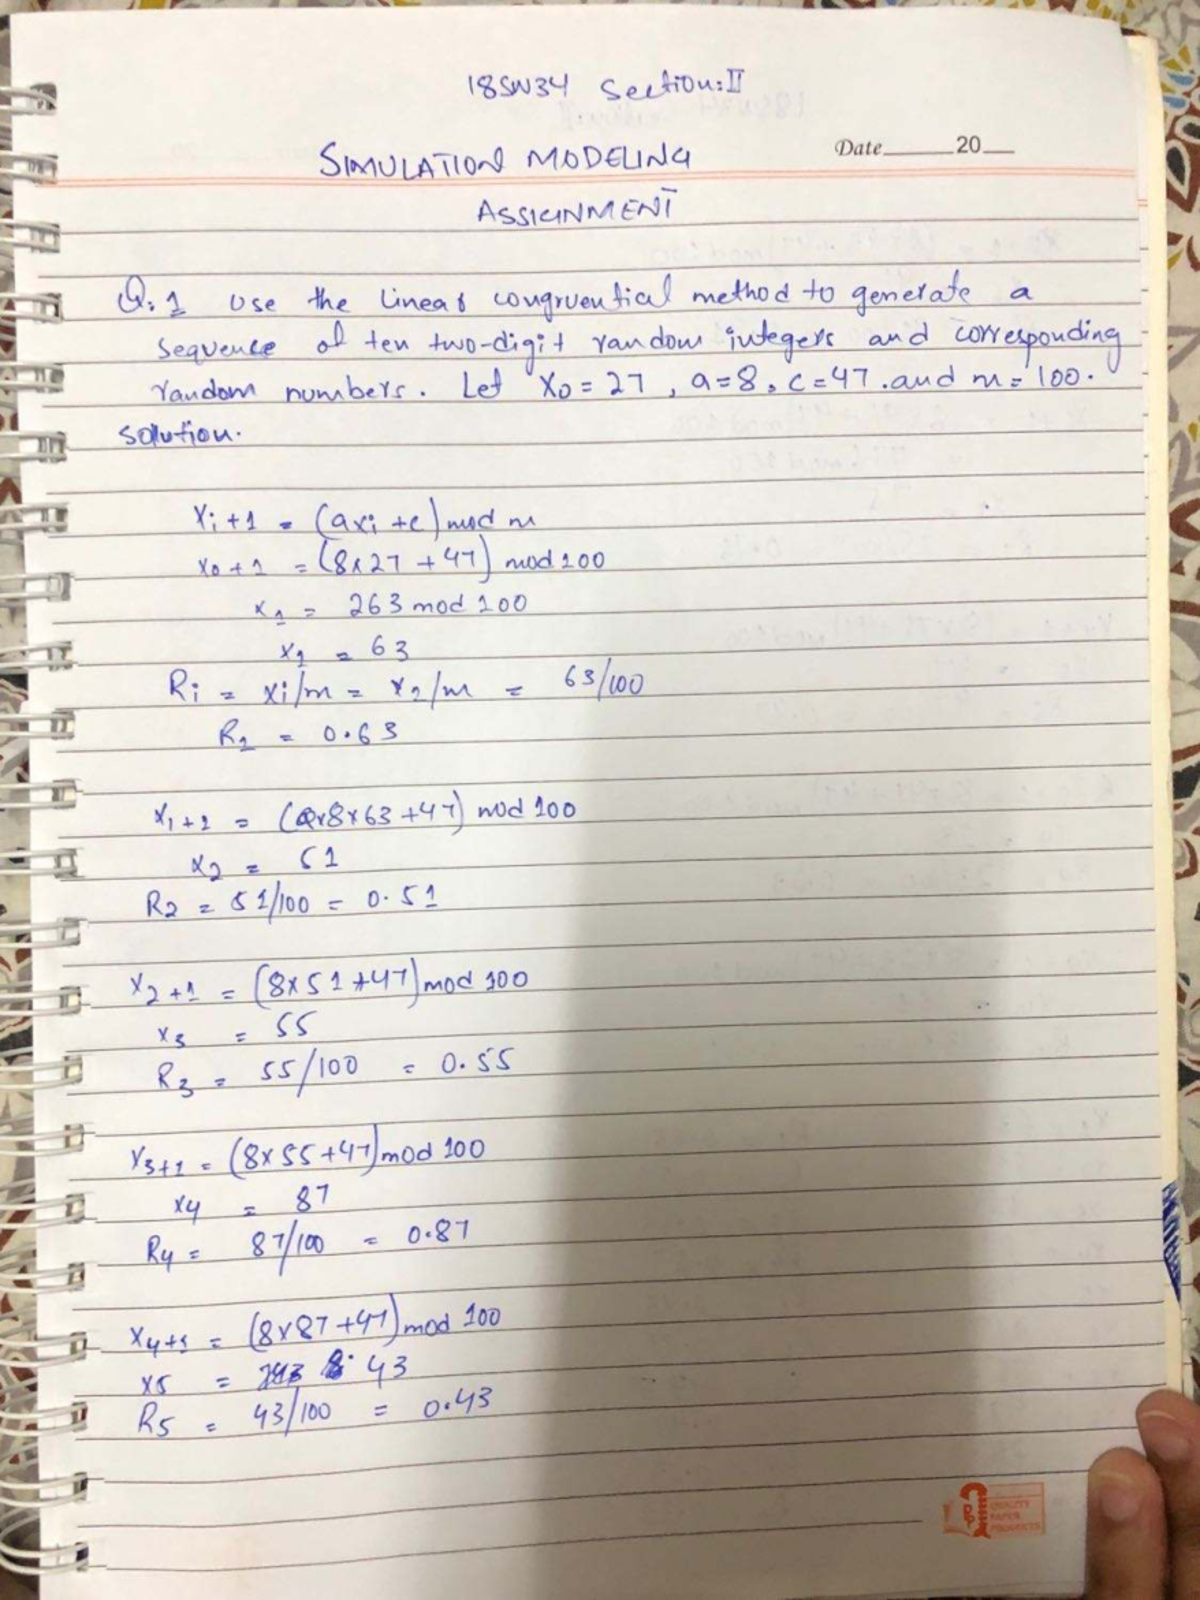 18SW34 Section: II
SIMULATION MODELING
Date 20
ASSIGNMENT
Q: 1 Use the Linear congruential method to generate a
sequence of ten two-digit random integers and corresponding
random numbers. Let X0 = 27 , a=8, c=47 .and m = 100.
solution.
Xi+1 = (axi +c) mod m
x0+1 = (8x27 +47) mod 100
x1 = 263 mod 100
x1 = 63
Ri = xi/m = x1/m = 63/100
R1 = 0.63
x1+1 = (8x63 +47) mod 100
x2 = 51
R2 = 51/100 = 0.51
x2+1 = (8x51+47) mod 100
x3 = 55
R3 = 55/100 = 0.55
x3+1 = (8x55+47) mod 100
x4 = 87
R4 = 87/100 = 0.87
x4+1 = (8x87+47) mod 100
x5 = 43
R5 = 43/100 = 0.43
QUALITY
PAPER
PRODUCTS